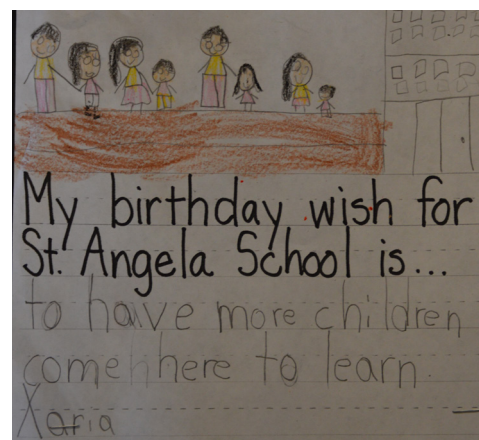 My birthday wish for
St. Angela School is...
to have more children
come here to learn.
Xaria